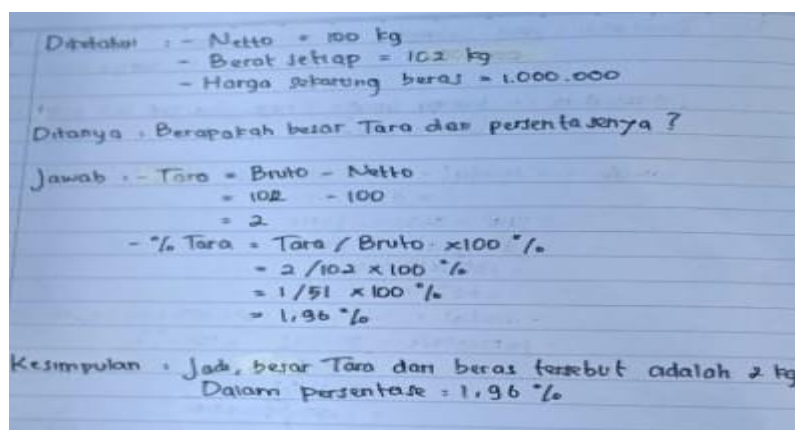 Diketahui : - Netto = 100 kg
- Berat setiap = 102 kg
- Harga sekarung beras = 1.000.000
Ditanya : Berapakah besar Tara dan persentasenya ?
Jawab : - Tara = Bruto - Netto
= 102 - 100
= 2
- % Tara = Tara / Bruto x100 %
= 2/102 x 100 %
= 1/51 x 100 %
= 1,96 %
Kesimpulan : Jadi, besar Tara dari beras tersebut adalah 2 kg
Dalam persentase = 1,96 %